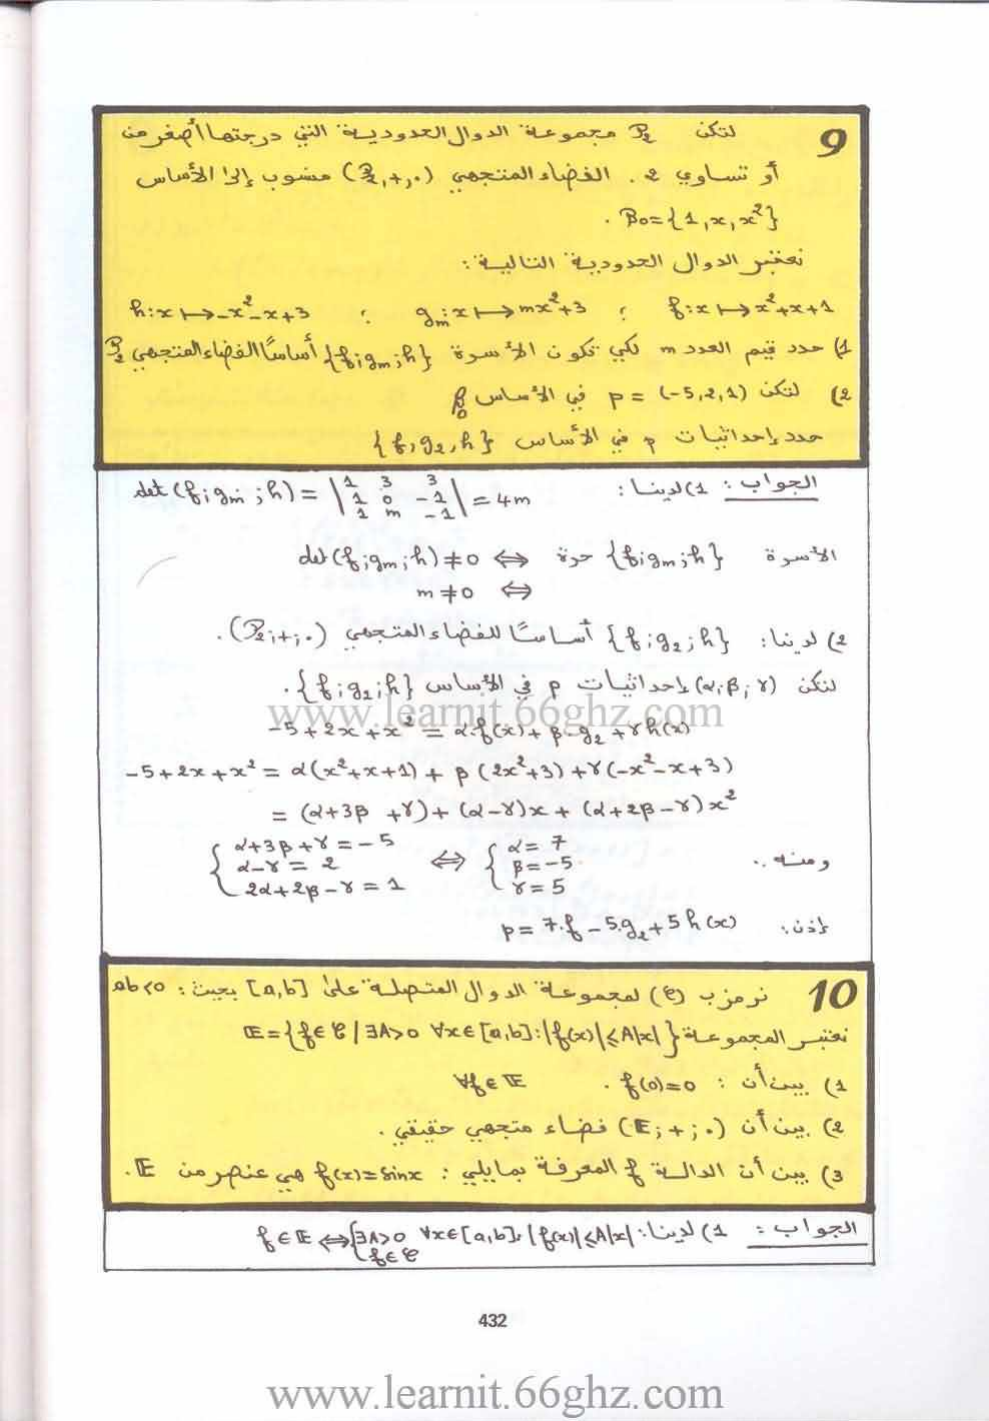 9 لتكن P₂ مجموعة الدوال الحدودية التي درجتها أصغر من
أو تساوي 2 . الفضاء المتجهي (P₂,+,.) منسوب إلى الأساس
B₀={1,x,x²} .
نعتبر الدوال الحدودية التالية :
f:x↦x²+x+1 ; gₘ:x↦mx²+3 ; h:x↦-x²-x+3
1) حدد قيم العدد m لكي تكون الأسرة {f;gₘ;h} أساسًا للفضاء المتجهي P₂
2) لتكن p = (-5,2,1) في الأساس B₀
حدد إحداثيات p في الأساس {f,g₂,h}
الجواب : 1) لدينا : det(f;gₘ;h) = |1 3 3
1 0 -1
1 m -1| = 4m
الأسرة {f;gₘ;h} حرة ⇔ det(f;gₘ;h)≠0
⇔ m≠0
2) لدينا : {f;g₂;h} أساسًا للفضاء المتجهي (P₂;+;.) .
لتكن (α;β;γ) إحداثيات p في الأساس {f;g₂;h} .
www.learnit.66ghz.com
-5+2x+x² = α.f(x)+β.g₂+γh(x)
-5+2x+x² = α(x²+x+1)+β(2x²+3)+γ(-x²-x+3)
= (α+3β+γ)+(α-γ)x+(α+2β-γ)x²
ومنه .. { α+3β+γ=-5 ⇔ { α=7
α-γ=2 β=-5
2α+2β-γ=1 γ=5
إذن : p=7.f-5.g₂+5h(x)
10 نرمز ب (C) لمجموعة الدوال المتصلة على [a,b] بحيث : ab<0
نعتبر المجموعة E={f∈C/∃A>0 ∀x∈[a,b]:|f(x)|≤A|x|}
1) بين أن : f(0)=0 . ∀f∈E
2) بين أن (E;+;.) فضاء متجهي حقيقي .
3) بين أن الدالة f المعرفة بمايلي : f(x)=sinx هي عنصر من E .
الجواب : 1) لدينا : f∈E⇔{∃A>0 ∀x∈[a,b], |f(x)|≤A|x|
f∈C
432
www.learnit.66ghz.com